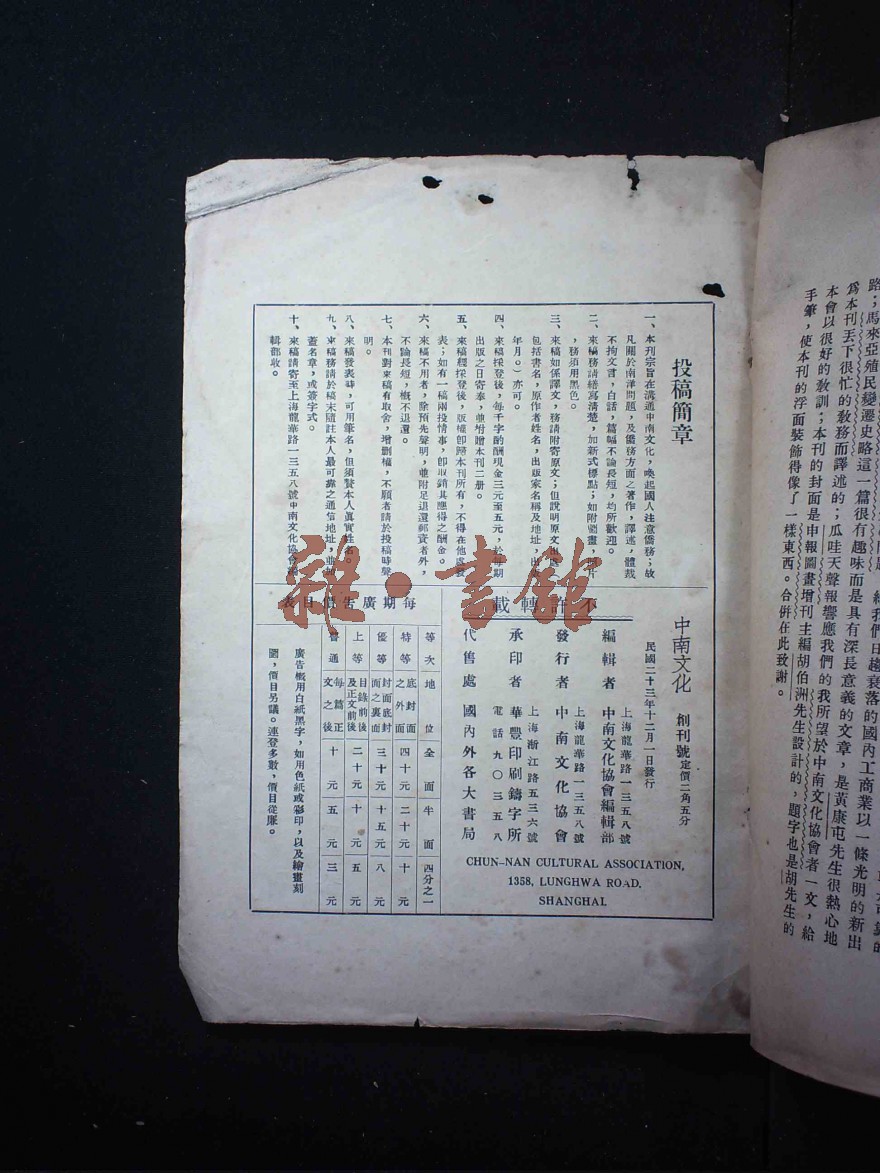 路；馬來亞殖民變遷史略這一篇很有趣味而是具有深長意義的文章，是黃康屯先生很熱心地
爲本刊丟下很忙的敎務而譯述的；瓜哇天聲報響應我們的我所望於中南文化協會者一文，給
本會以很好的敎訓；本刊的封面是申報圖畫增刊主編胡伯洲先生設計的，題字也是胡先生的
手筆，使本刊的浮面裝飾得像了一樣東西。合併在此致謝。
投稿簡章
一、本刊宗旨在溝通中南文化，喚起國人注意僑務；故
凡關於南洋問題，及僑務方面之著作，譯述，體裁
不拘文言，白話，篇幅不論長短，均所歡迎。
二、來稿務請繕寫清楚，加新式標點；如附圖畫，照片
，務須用黑色。
三、來稿如係譯文，務請附寄原文；但說明原文出處（
包括書名，原作者姓名，出版家名稱及地址，出版
年月。）亦可。
四、來稿採登後，每千字酌酬現金三元至五元，於每期
出版之日寄奉，並附贈本刊二册。
五、來稿經採登後，版權卽歸本刊所有，不得在他處發
表；如有一稿兩投情事，卽取銷其應得之酬金。
六、來稿不用者，除預先聲明，並附足退還郵資者外，
不論長短，槪不退還。
七、本刊對來稿有取舍，增删權，不願者請於投稿時聲
明。
八、來稿發表時，可用筆名，但須贅本人眞實姓名。
九、來稿務請於稿末隨註本人最可靠之通信地址，並加
蓋名章，或簽字式。
十、來稿請寄至上海龍華路一三五八號中南文化協會編
輯部收。
中南文化 創刊號定價二角五分
民國二十三年十二月一日發行
不許轉載
上海龍華路一三五八號
編輯者 中南文化協會編輯部
上海龍華路一三五八號
發行者 中南文化協會
上海浙江路五三六號
承印者 華豐印刷鑄字所
電話九〇三五八
代售處 國內外各大書局
CHUN-NAN CULTURAL ASSOCIATION,
1358, LUNGHWA ROAD.
SHANGHAI.
每期廣告價目表
等次 地位 全面 半面 四分之一
特等 底封面之外面 四十元 二十元 十元
優等 封面底封面之裏面 三十元 十五元 八元
上等 目錄前後及正文前後 二十元 十元 五元
普通 每篇正文之後 十元 五元 三元
廣告槪用白紙黑字，如用色紙或彩印，以及繪畫刻
圖，價目另議。連登多數，價目從廉。
雜·書館